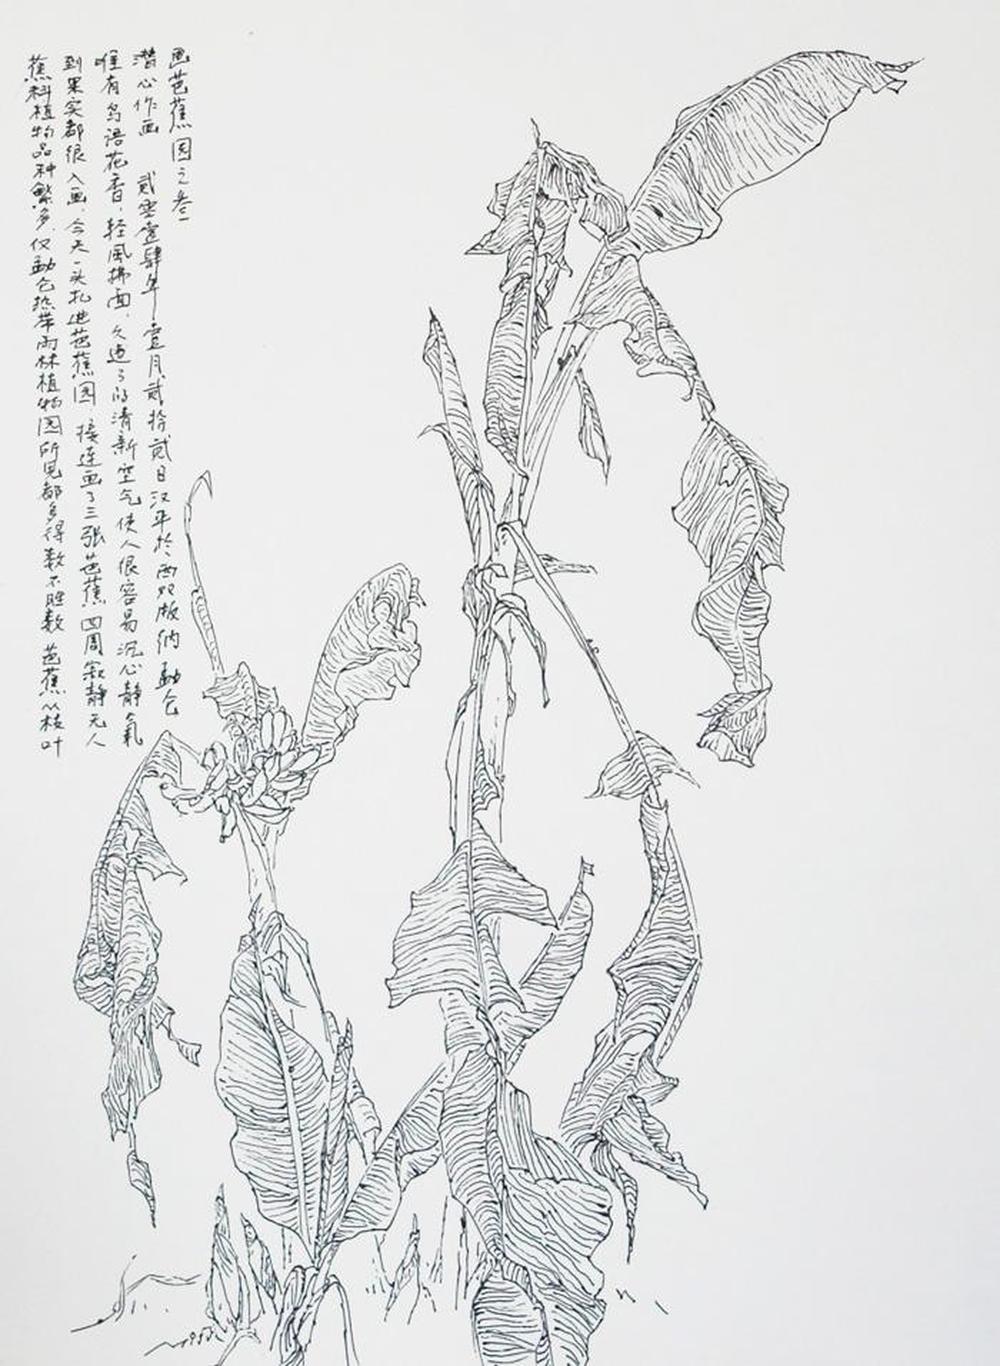 蕉科植物品种繁多,仅勐仑热带雨林植物园所见都多得数不胜数 芭蕉从枝叶
到果实都很入画,今天一头扎进芭蕉园,接连画了三张芭蕉 四周寂静无人
唯有鸟语花香,轻风拂面,久违了的清新空气使人很容易沉心静氣
潜心作画 贰零壹肆年壹月贰拾贰日汉平於西双版纳勐仑
画芭蕉园之叁